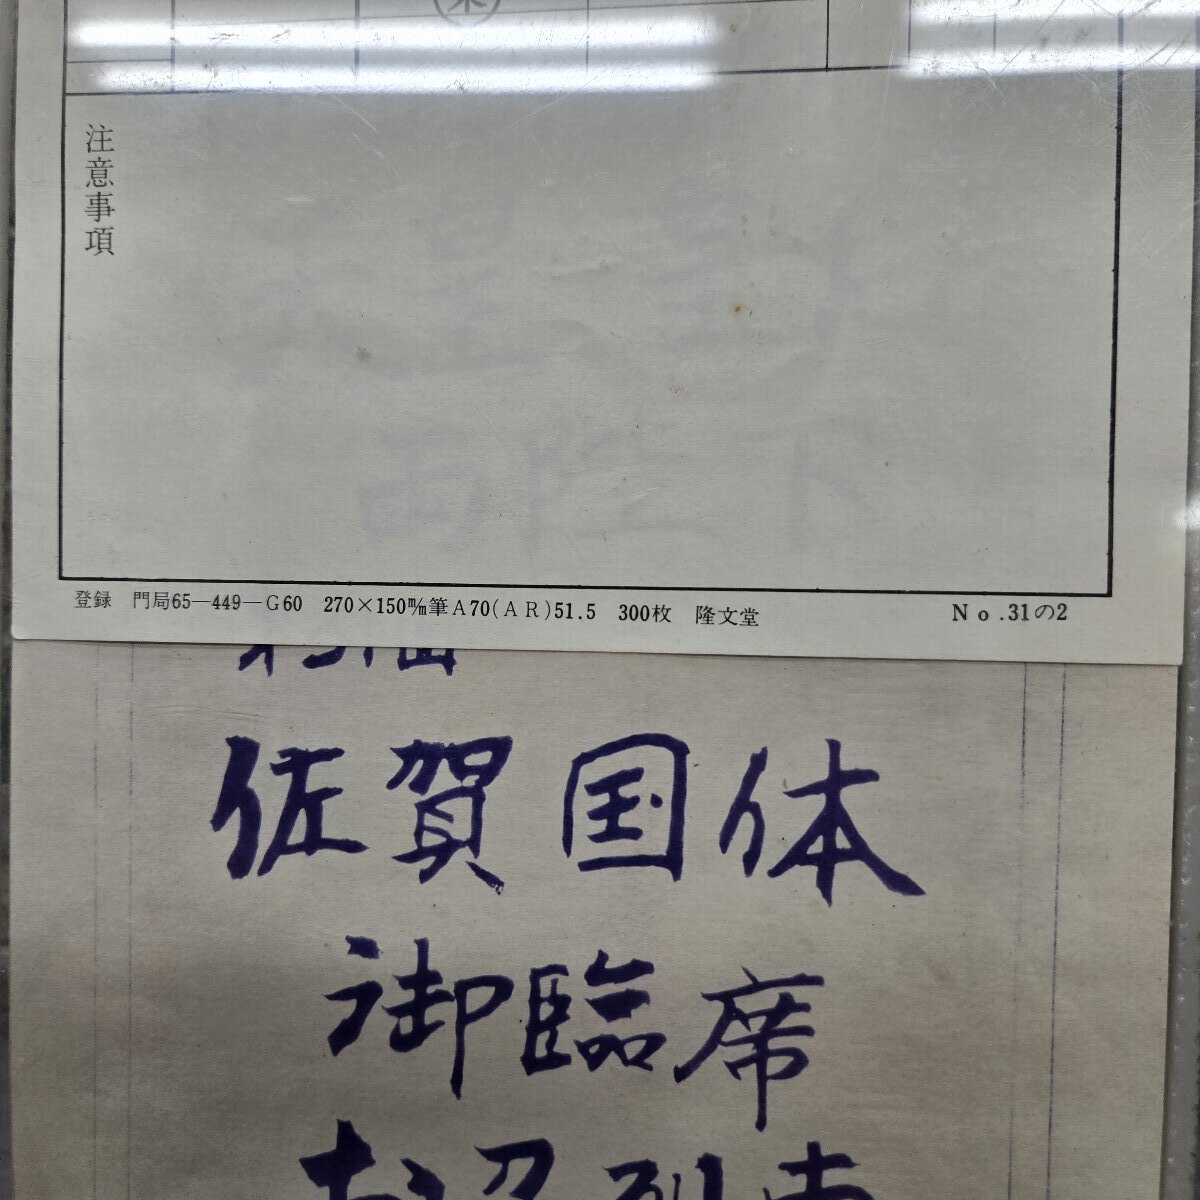 注意事項
天皇 皇后
両陛下
登録 門局65―449―G60 270×150㎜筆A70(AR)51.5 300枚 隆文堂 No.31の2
佐賀国体
御臨席
お召列車